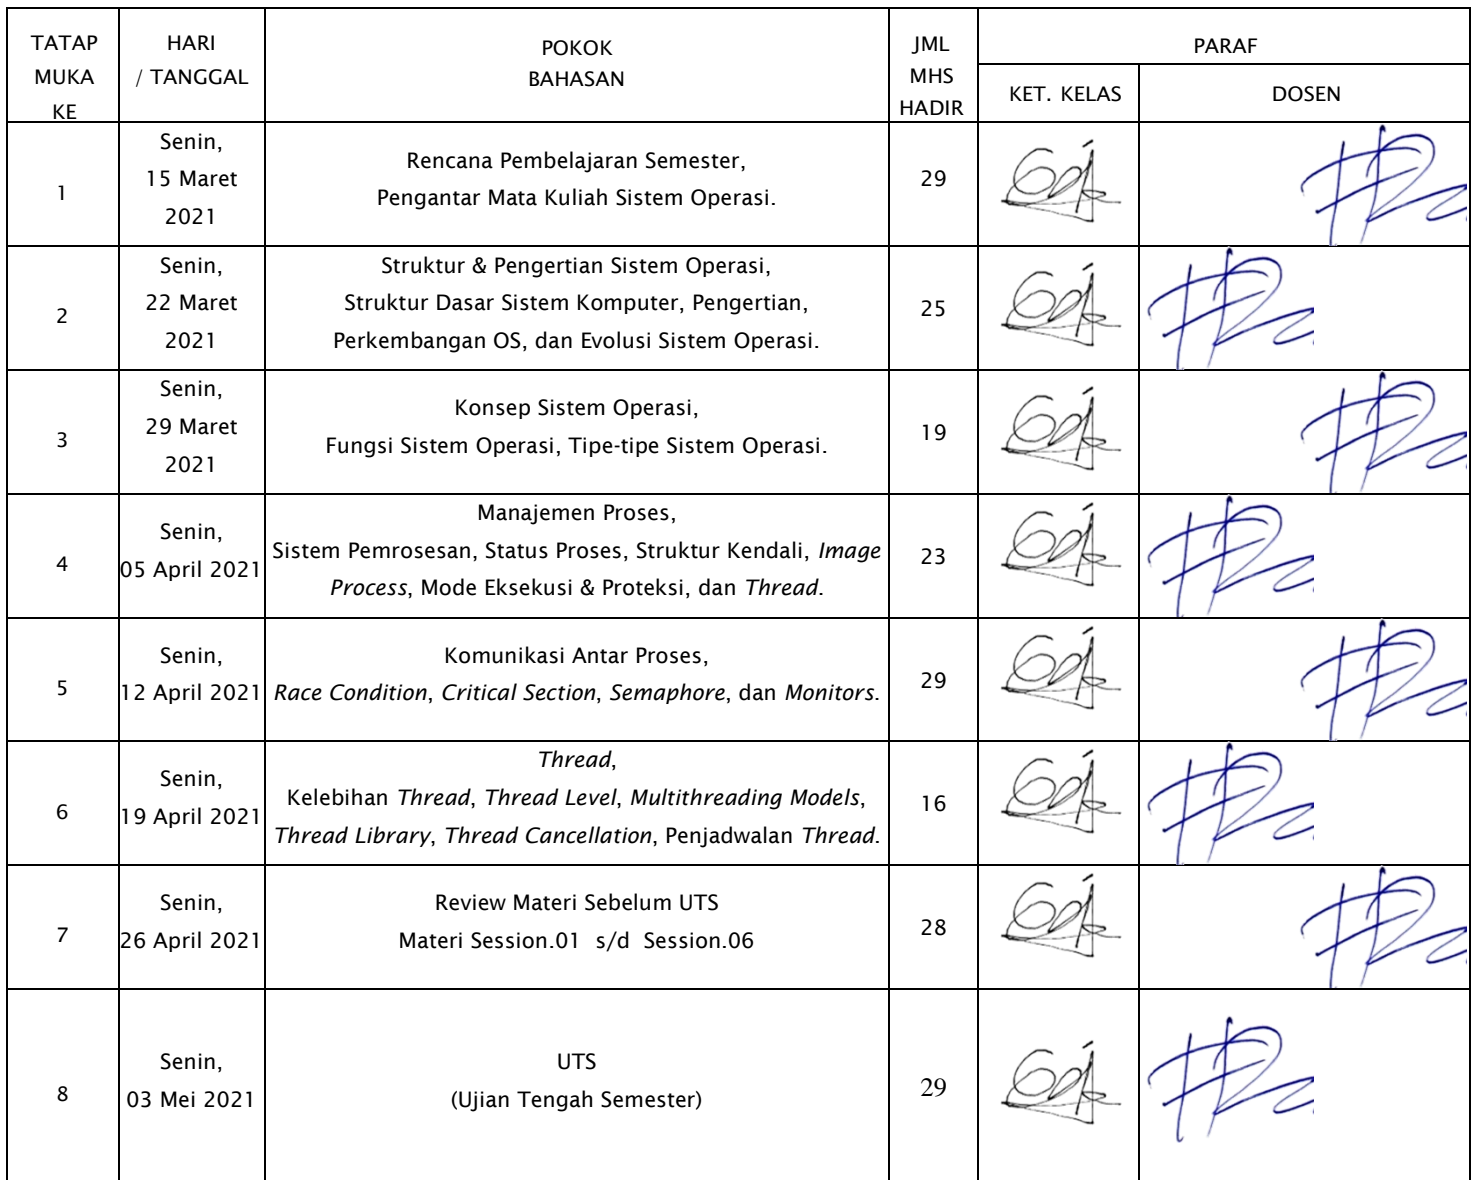 TATAP
MUKA
KE
HARI
/ TANGGAL
POKOK
BAHASAN
JML
MHS
HADIR
PARAF
KET. KELAS
DOSEN
1
Senin,
15 Maret
2021
Rencana Pembelajaran Semester,
Pengantar Mata Kuliah Sistem Operasi.
29
2
Senin,
22 Maret
2021
Struktur & Pengertian Sistem Operasi,
Struktur Dasar Sistem Komputer, Pengertian,
Perkembangan OS, dan Evolusi Sistem Operasi.
25
3
Senin,
29 Maret
2021
Konsep Sistem Operasi,
Fungsi Sistem Operasi, Tipe-tipe Sistem Operasi.
19
4
Senin,
05 April 2021
Manajemen Proses,
Sistem Pemrosesan, Status Proses, Struktur Kendali, Image
Process, Mode Eksekusi & Proteksi, dan Thread.
23
5
Senin,
12 April 2021
Komunikasi Antar Proses,
Race Condition, Critical Section, Semaphore, dan Monitors.
29
6
Senin,
19 April 2021
Thread,
Kelebihan Thread, Thread Level, Multithreading Models,
Thread Library, Thread Cancellation, Penjadwalan Thread.
16
7
Senin,
26 April 2021
Review Materi Sebelum UTS
Materi Session.01 s/d Session.06
28
8
Senin,
03 Mei 2021
UTS
(Ujian Tengah Semester)
29